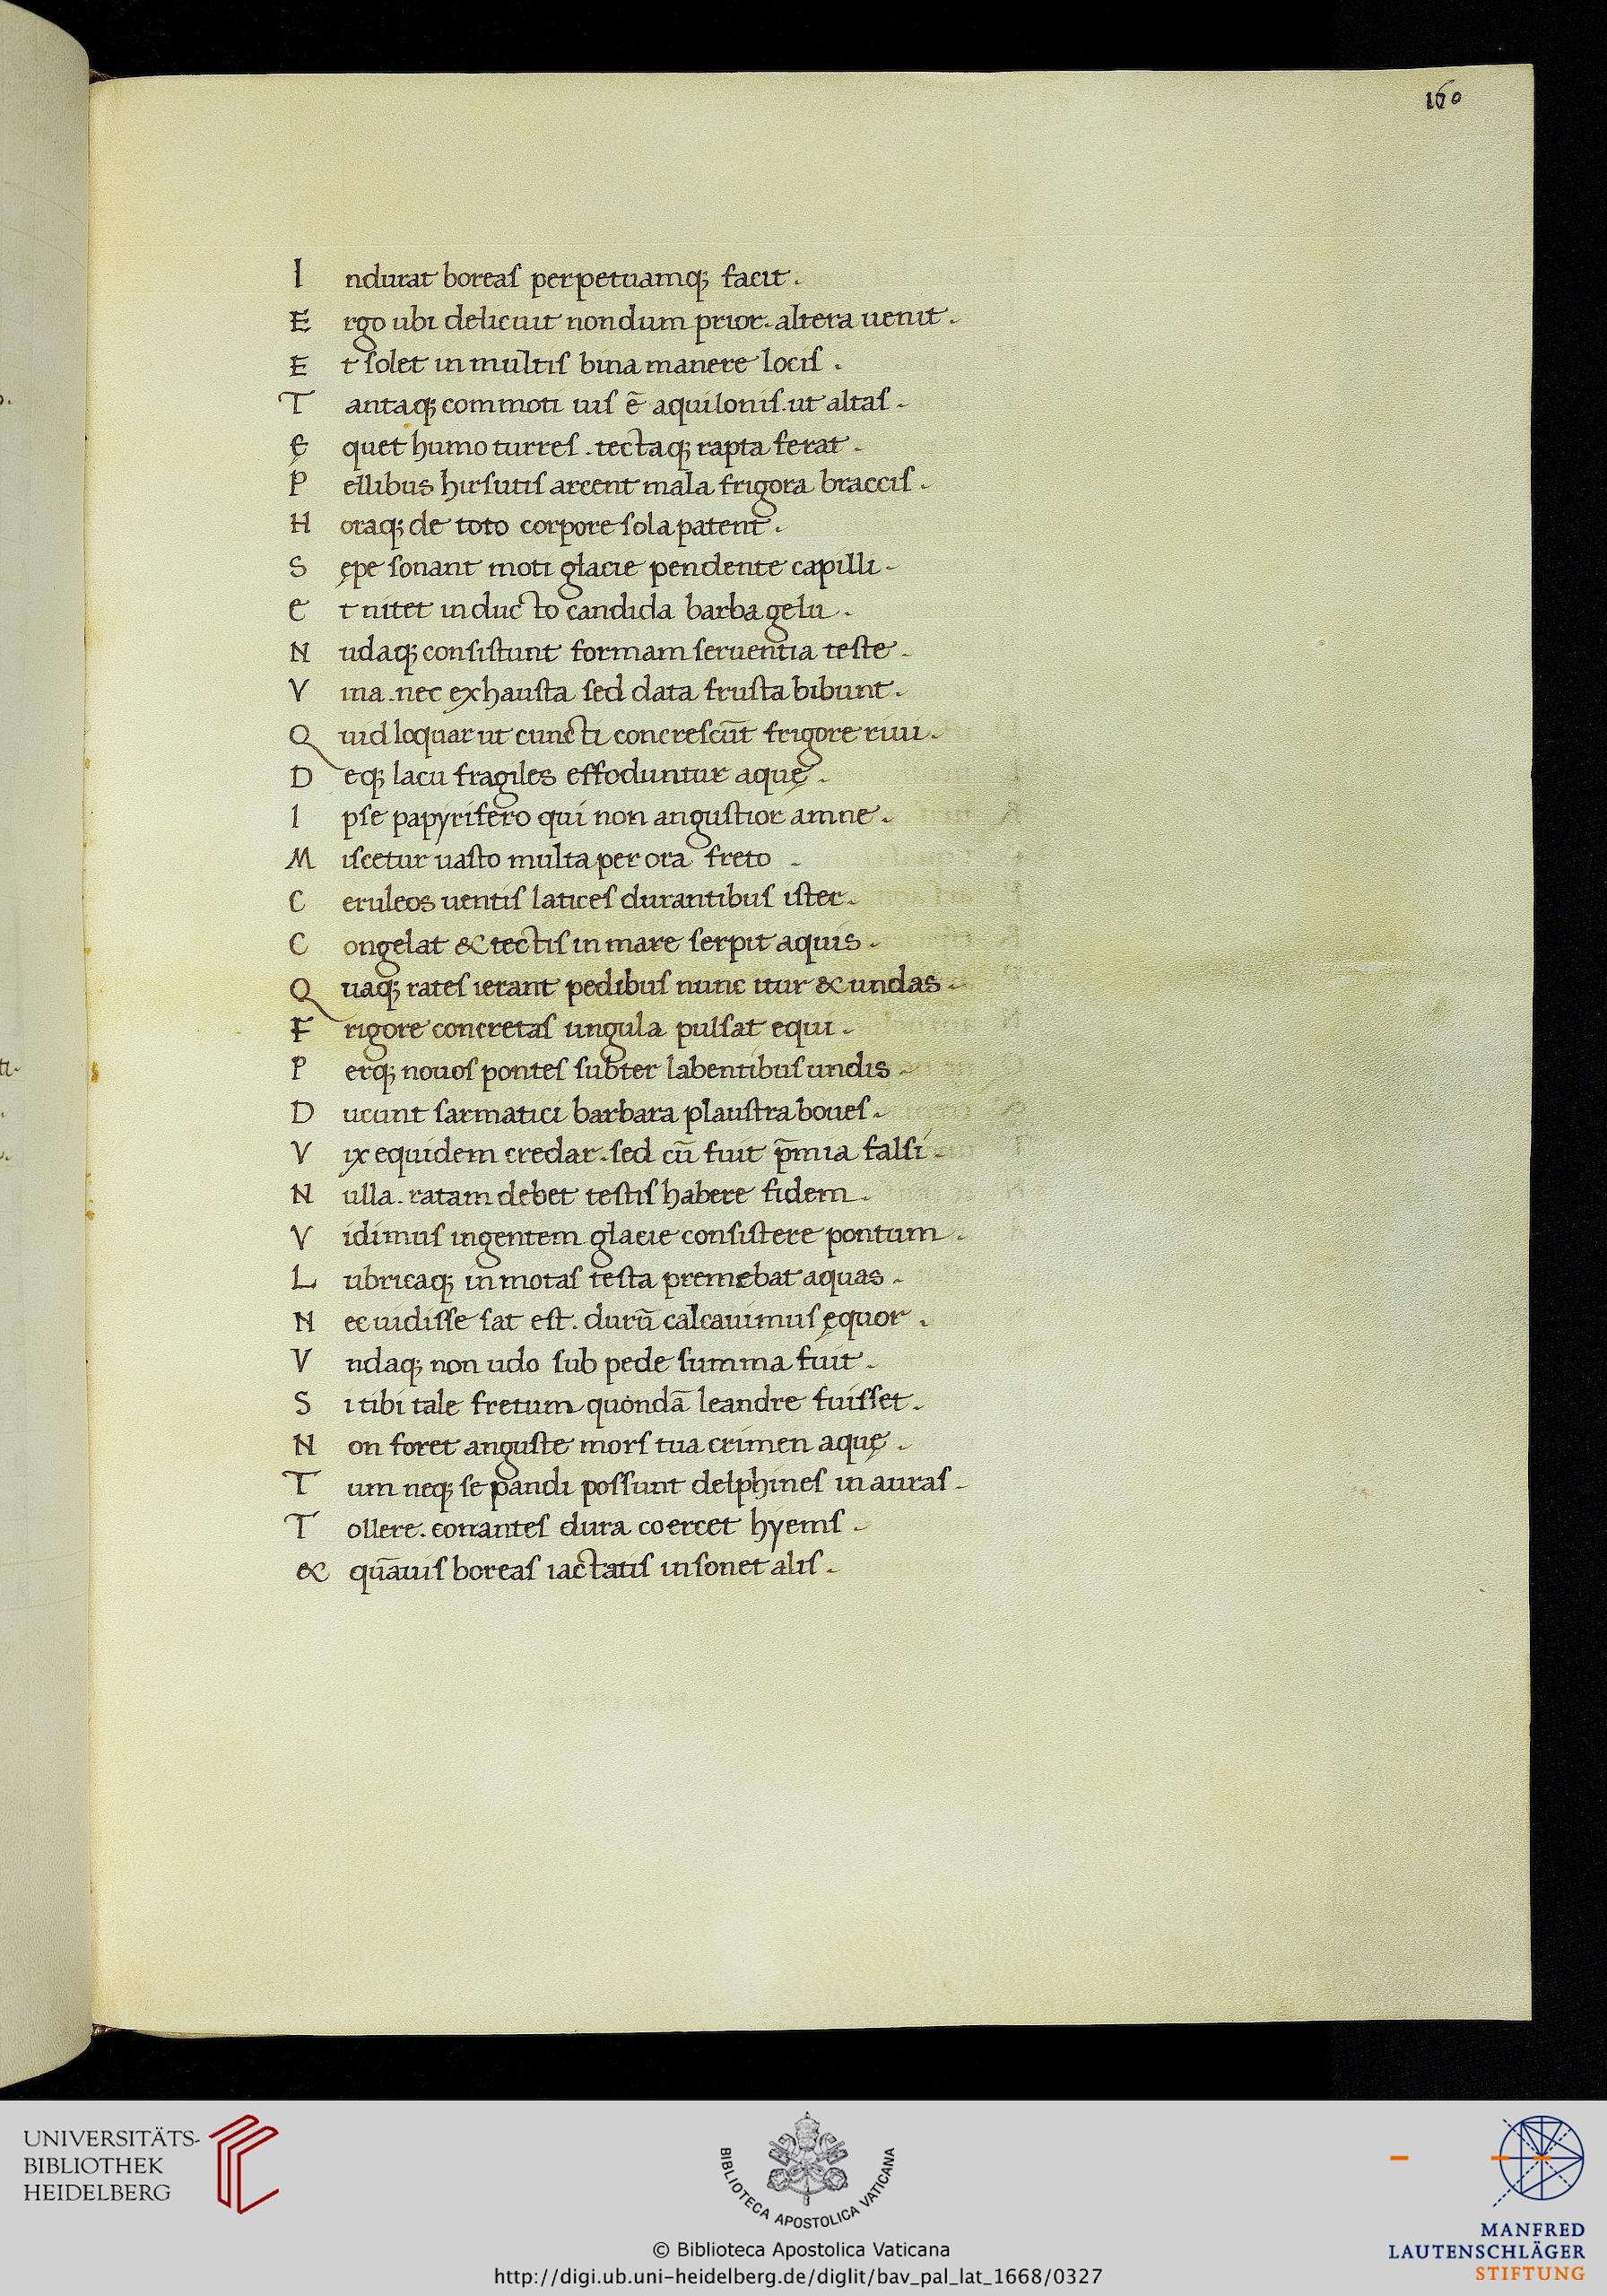 160
I ndurat boreas perpetuamq; facit.
E rgo ubi delicuit nondum prior. altera uenit.
E t solet in multis bina manere locis.
T antaq; commoti uis ē aquilonis. ut altas.
Ę quet humo turres. tectaq; rapta ferat.
P ellibus hirsutis arcent mala frigora braccis.
H oraq; de toto corpore sola patent.
S ępe sonant moti glacie pendente capilli.
E t nitet inducto candida barba gelu.
N udaq; consistunt formam seruentia teste.
V ina. nec exhausta sed data frusta bibunt.
Q uid loquar ut cuncti concrescūt frigore riui.
D eq; lacu fragiles effoduntur aquę.
I pse papyrifero qui non angustior amne.
M iscetur uasto multa per ora freto.
C eruleos uentis latices durantibus ister.
C ongelat & tectis in mare serpit aquis.
Q uaq; rates ierant pedibus nunc itur & undas.
F rigore concretas ungula pulsat equi.
P erq; nouos pontes subter labentibus undis.
D ucunt sarmatici barbara plaustra boues.
V ix equidem credar. sed cū fuit p̄mia falsi.
N ulla. ratam debet testis habere fidem.
V idimus ingentem glacie consistere pontum.
L ubricaq; inmotas testa premebat aquas.
N ec uidisse sat est. durū calcauimus ęquor.
V ndaq; non udo sub pede summa fuit.
S i tibi tale fretum quondā leandre fuisset.
N on foret anguste mors tua crimen aquę.
T um neq; se pandi possunt delphines in auras.
T ollere. conantes dura coercet hyems.
& quāuis boreas iactatis insonet alis.
UNIVERSITÄTS-
BIBLIOTHEK
HEIDELBERG
BIBLIOTECA APOSTOLICA VATICANA
© Biblioteca Apostolica Vaticana
http://digi.ub.uni-heidelberg.de/diglit/bav_pal_lat_1668/0327
MANFRED
LAUTENSCHLÄGER
STIFTUNG